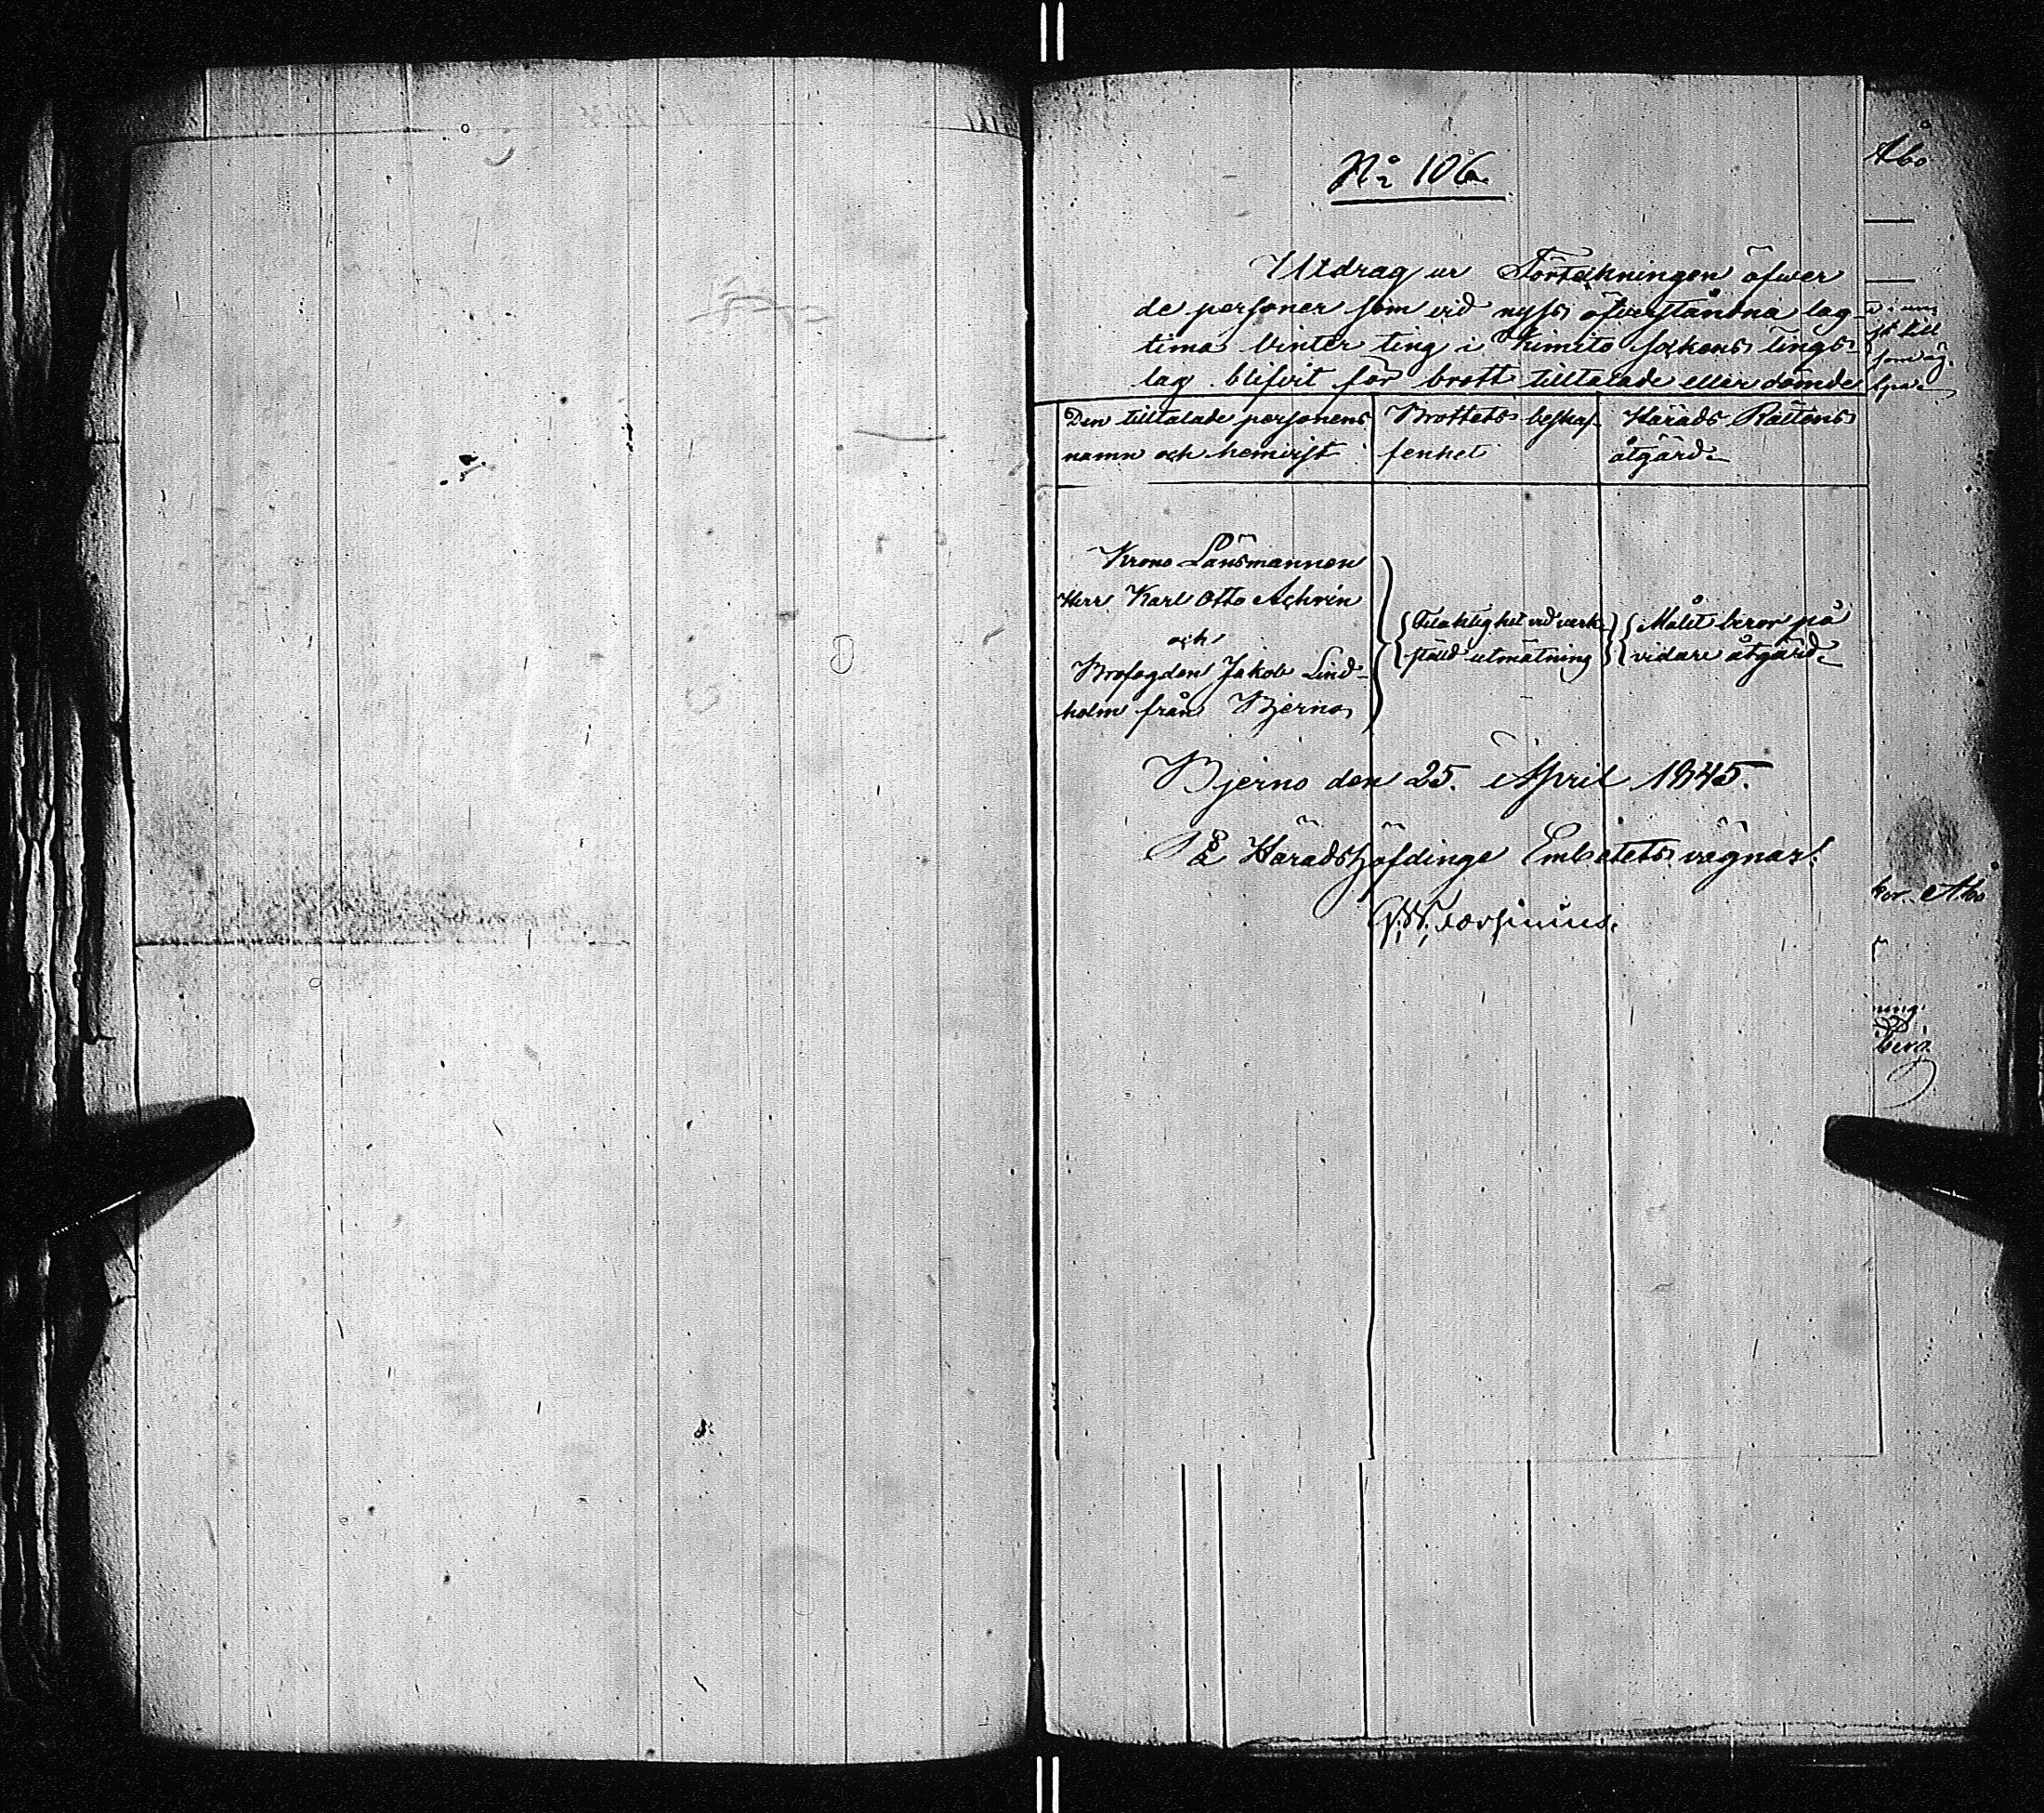 No 106.
Utdrag ur Förtekningen öfwer
de personer som vid nyss öfverståndna lag-
tima Vinter ting i Kimito Sokens tings-
lag blifvit för brott tilltalade eller dömde
Den tilltalade personens
namn och hemvist
Brottets beskaf-
fenhet
Härads Rättens
åtgärd
Krono Länsmannen
Herr Karl Otto
och
Brofogden Jakob Lind-
holm från Bjerno
Felaktighet vid verk-
ställd utmätning
Målet beror på
vidare åtgärd
Bjerno den 25. April 1845.
På Häradshöfdinge Embetets vägnar:
Åbo